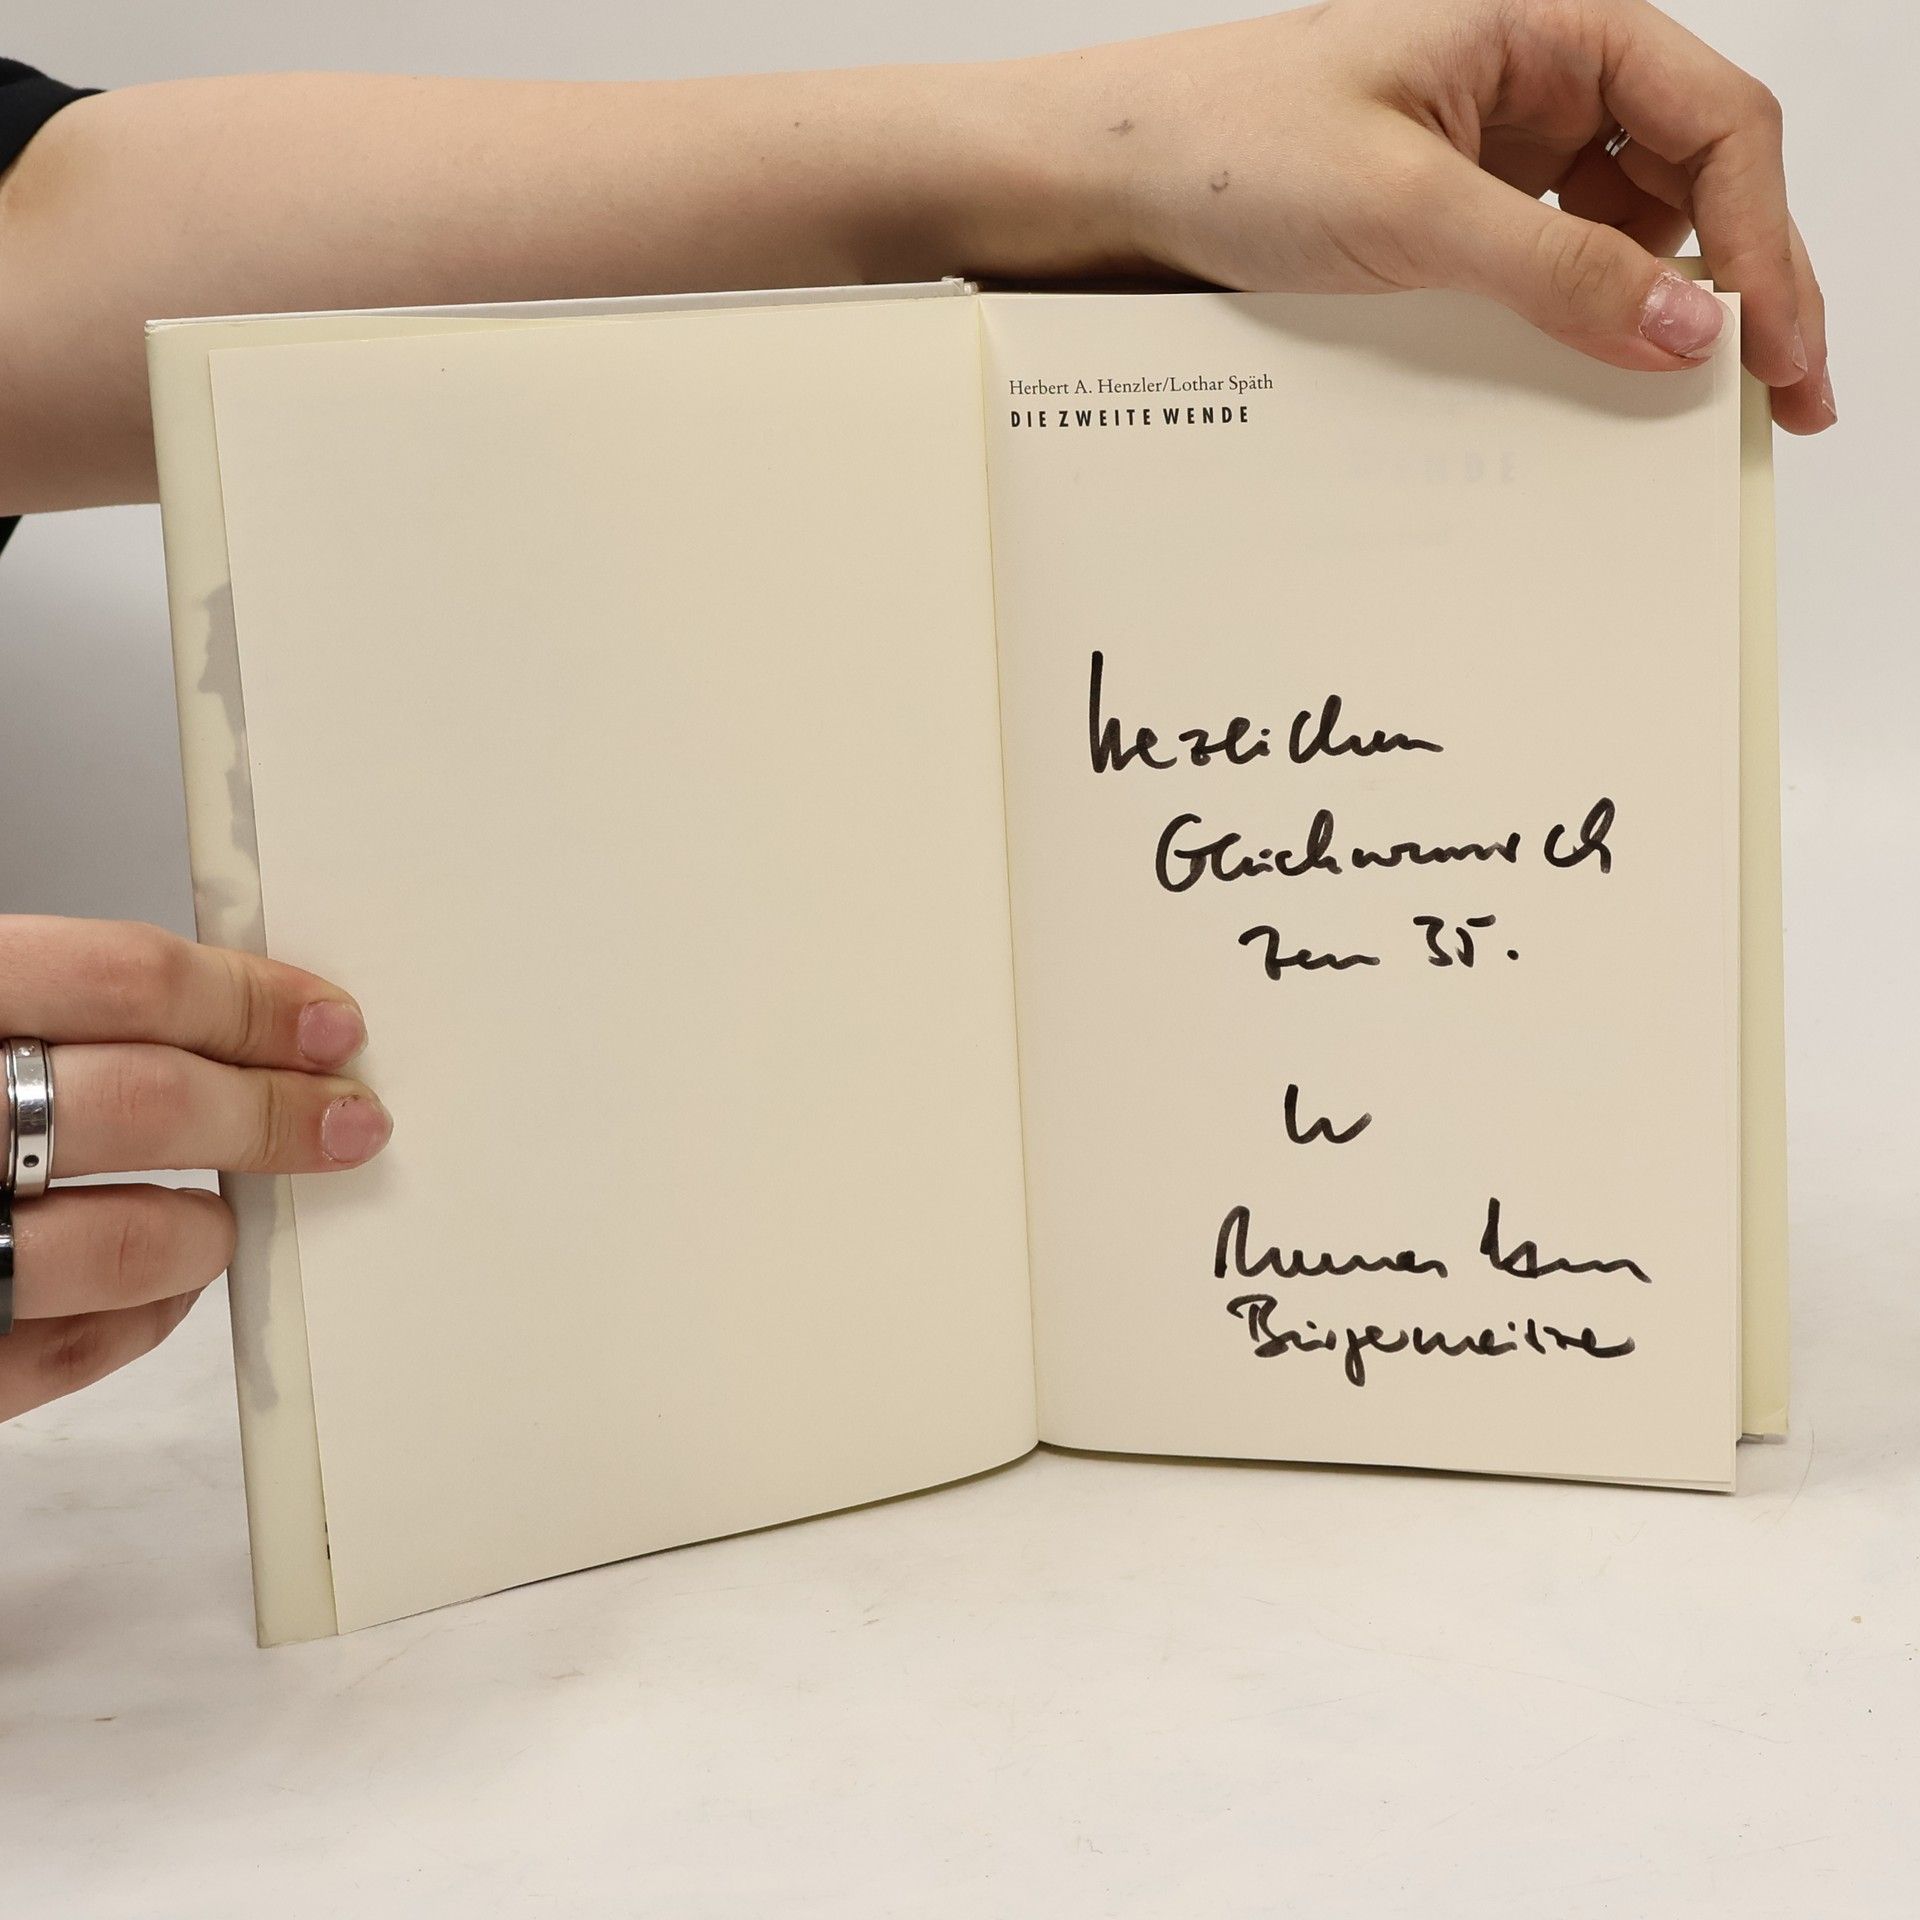 Herbert A. Henzler/Lothar Späth
DIE ZWEITE WENDE
Herzlichen
Glückwunsch
zum 35.
Bürgermeister